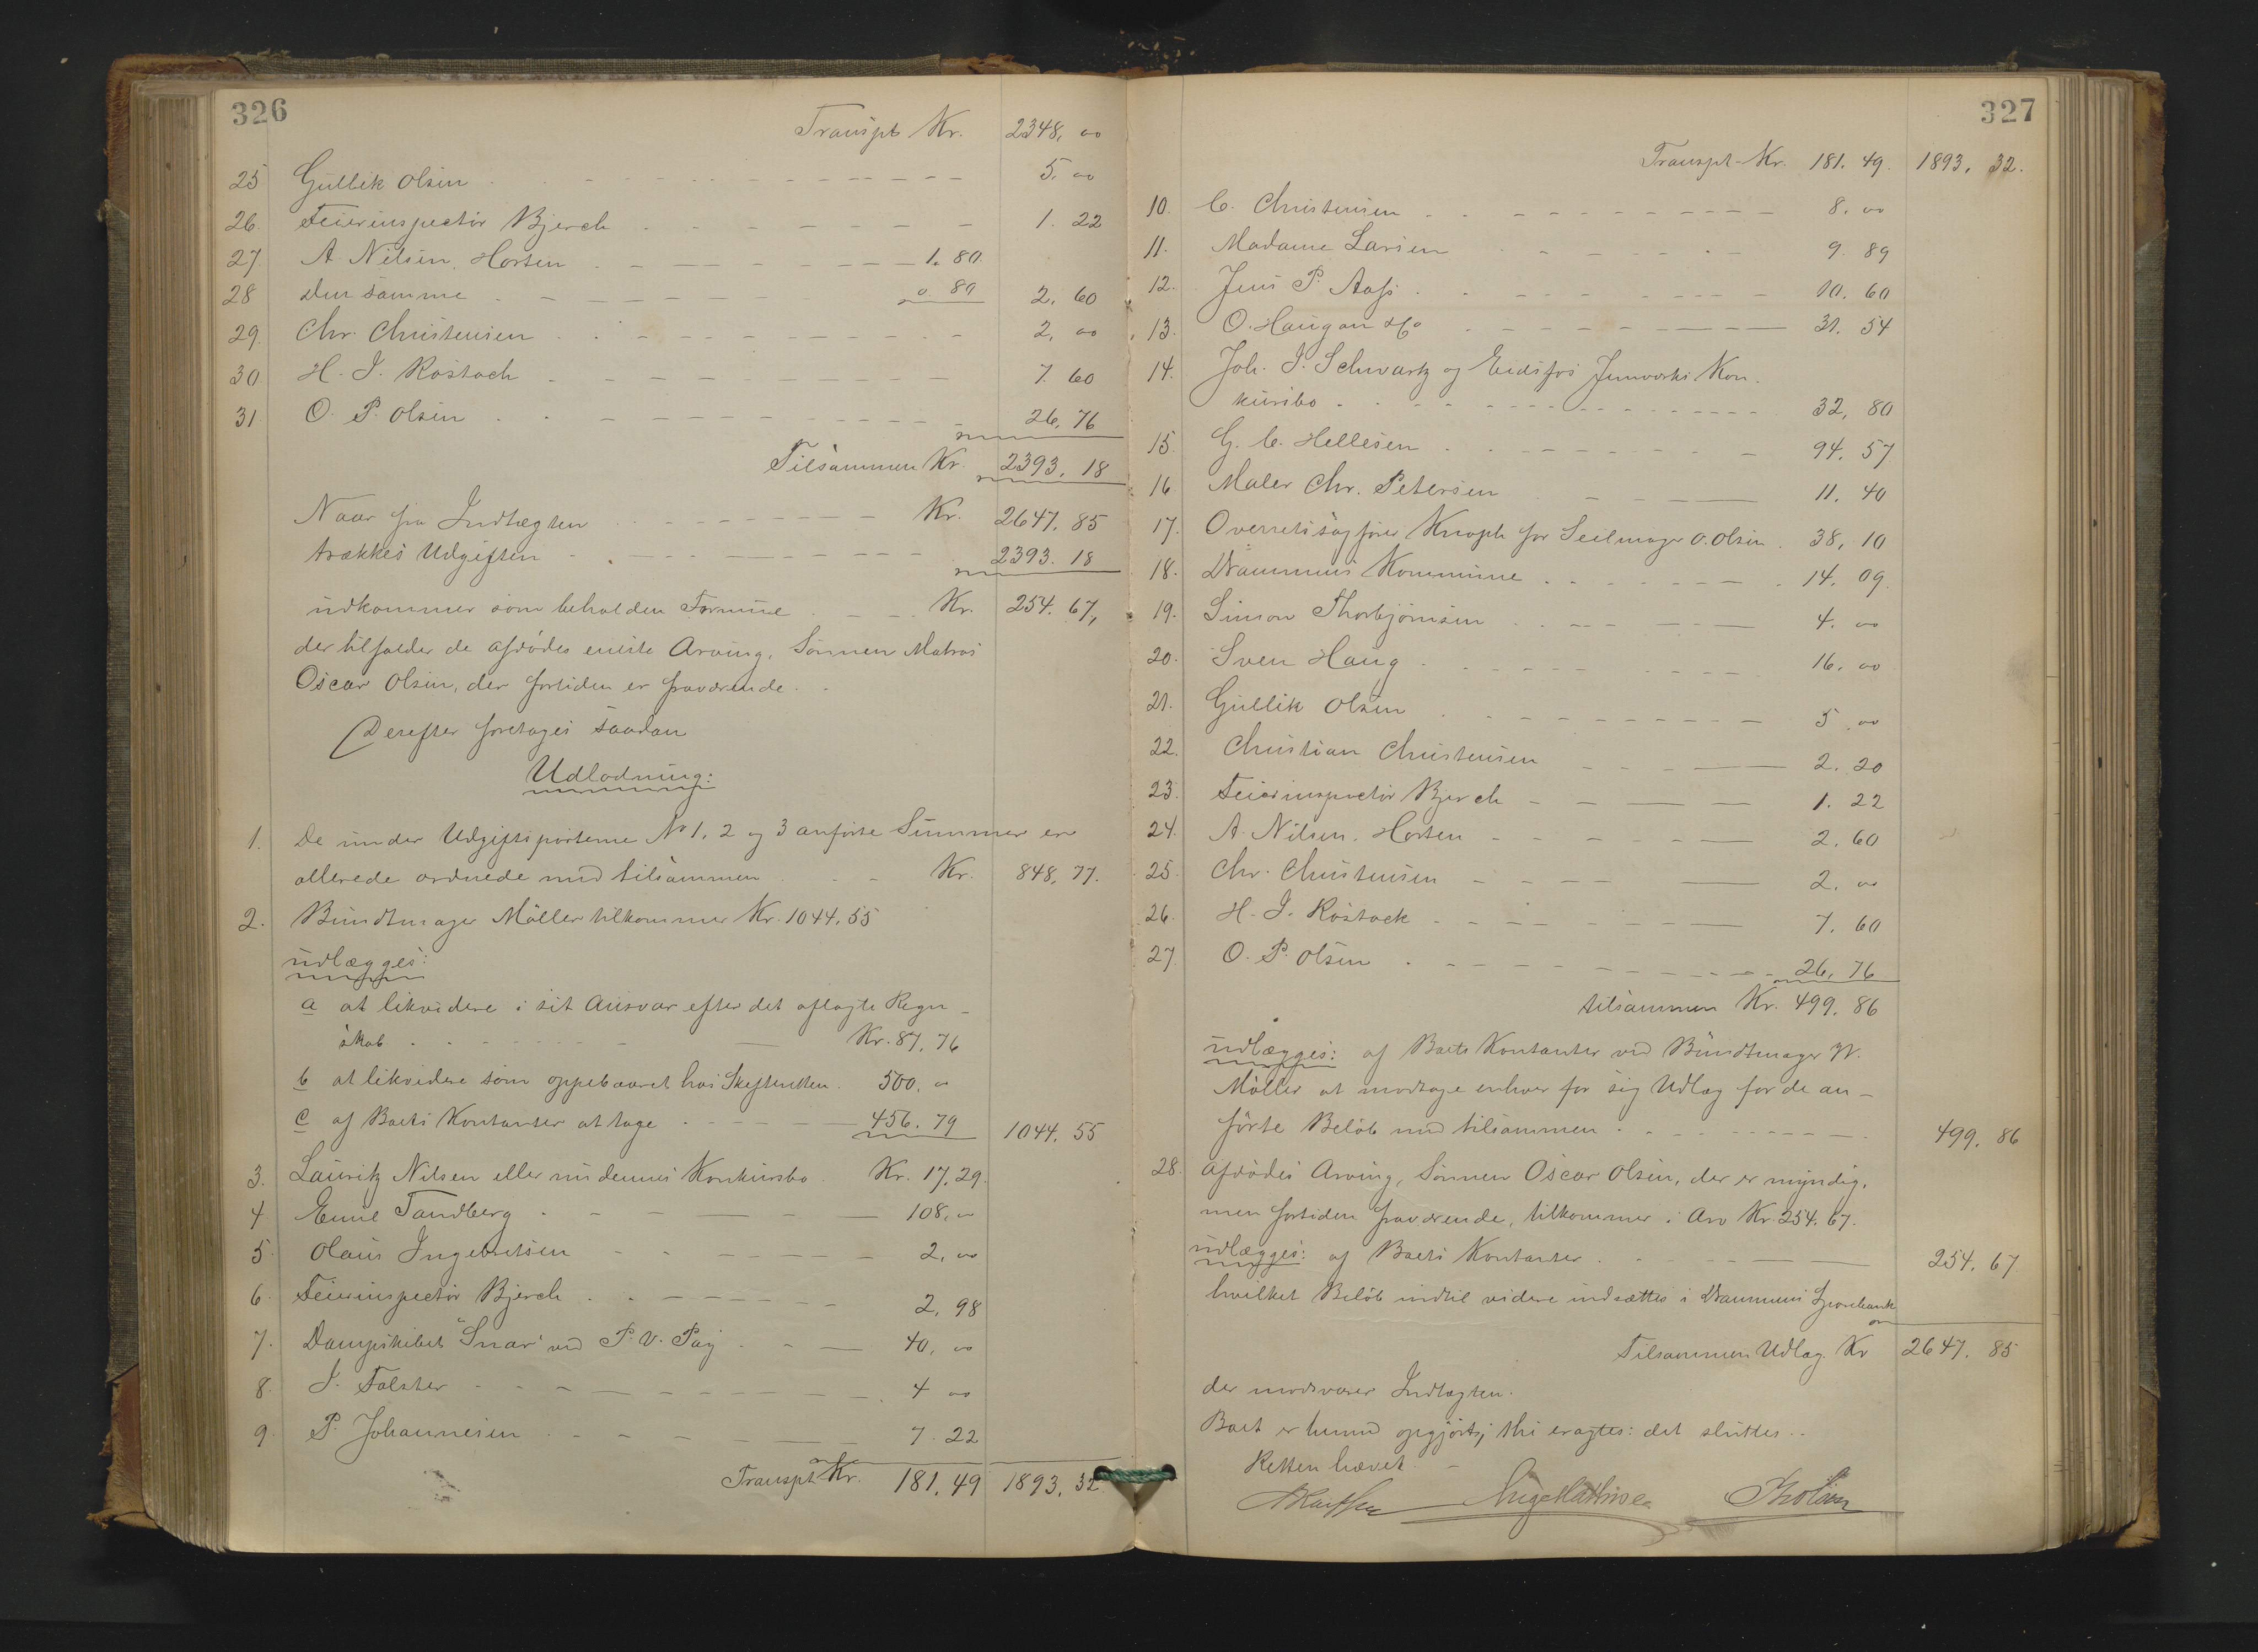 326
Transpt Kr. 2348, 00
25 Gullik Olsen 5. 00
26. Feierinspectør Bjerch 1. 22
27. A Nilsen, Horten 1. 80.
28 Den samme 0. 80 2. 60
29. Chr. Christensen 2, 00
30 H. J. Rostock 7. 60
31 O. P. Olsen 26, 76
Tilsammen Kr. 2393. 18
Naar fra Indtægten Kr. 2647. 85
trækkes Udgiften 2393. 18
udkommer som beholden Formue Kr. 254. 67,
der tilfalder de afdödes eneste Arving, Sönnen Matros
Oscar Olsen, der fortiden er fraværende.
Derefter foretoges saadan
Udlodning:
1. De under Udgiftsposterne No 1, 2 og 3 anförte Summer er
allerede ordnede med tilsammen Kr. 848, 77.
2. Bundtmager Möller tilkommer Kr. 1044. 55
udlægges:
a at likvidere i sit Ansvar efter det aflagte Regn-
skab Kr. 87, 76
b at likvidere som oppebaaret hos Skifteretten. 500. 00
c af Boets Kontanter at tage 456. 79 1044. 55
3. Lauritz Nilsen eller nu dennes Konkursbo Kr. 17, 29.
4 Emil Tandberg 108, 00
5. Olaus Ingebretsen 2, 00
6. Feierinspectør Bjerch 2, 98
7. Dampskibet "Snar" ved P. V. Paij 40, 00
8. J. Falster 4 00
9. P. Johannesen 7. 22
Transpt Kr. 181, 49 1893, 32.
327
Transpt Kr. 181. 49. 1893, 32.
10. C. Christensen 8. 00
11. Madame Larsen 9. 89
12. Jens P. Aass 10. 60
13. O. Haugan & Co 31. 54
14. Joh. J. Schwartz og Eidsfos Jernværks Kon-
kursbo 32, 80
15. G. C. Hellesen 94. 57
16 Maler Chr. Petersen 11. 40
17. Overretssagförer Knoph for Seilmager O. Olsen 38, 10
18. Drammens Kommune 14. 09
19. Simon Thorbjörnsen 4. 00
20. Sven Haug 16. 00
21. Gullik Olsen 5. 00
22. Christian Christensen 2. 20
23. Feierinspectør Bjerch 1. 22
24. A. Nilsen, Horten 2. 60
25. Chr. Christensen 2. 00
26. H. J. Rostock 7. 60
27. O. P. Olsen 26, 76
tilsammen Kr. 499. 86
udlægges: af Boets Kontanter ved Bundtmager W.
Möller at modtage enhver for sig Udlæg for de an-
förte Belöb med tilsammen 499. 86
28. Afdödes Arving, Sönnen Oscar Olsen, der er myndig,
men fortiden fraværende, tilkommer i Arv Kr. 254. 67.
udlægges: af Boets Kontanter 254. 67.
hvilket Belöb indtil videre indsættes i Drammens Sparebank
Tilsammen Udlæg Kr 2647. 85
der modsvarer Indtægten.
Boet er hermed opgjört; thi eragtes: det sluttes.
Retten hævet.